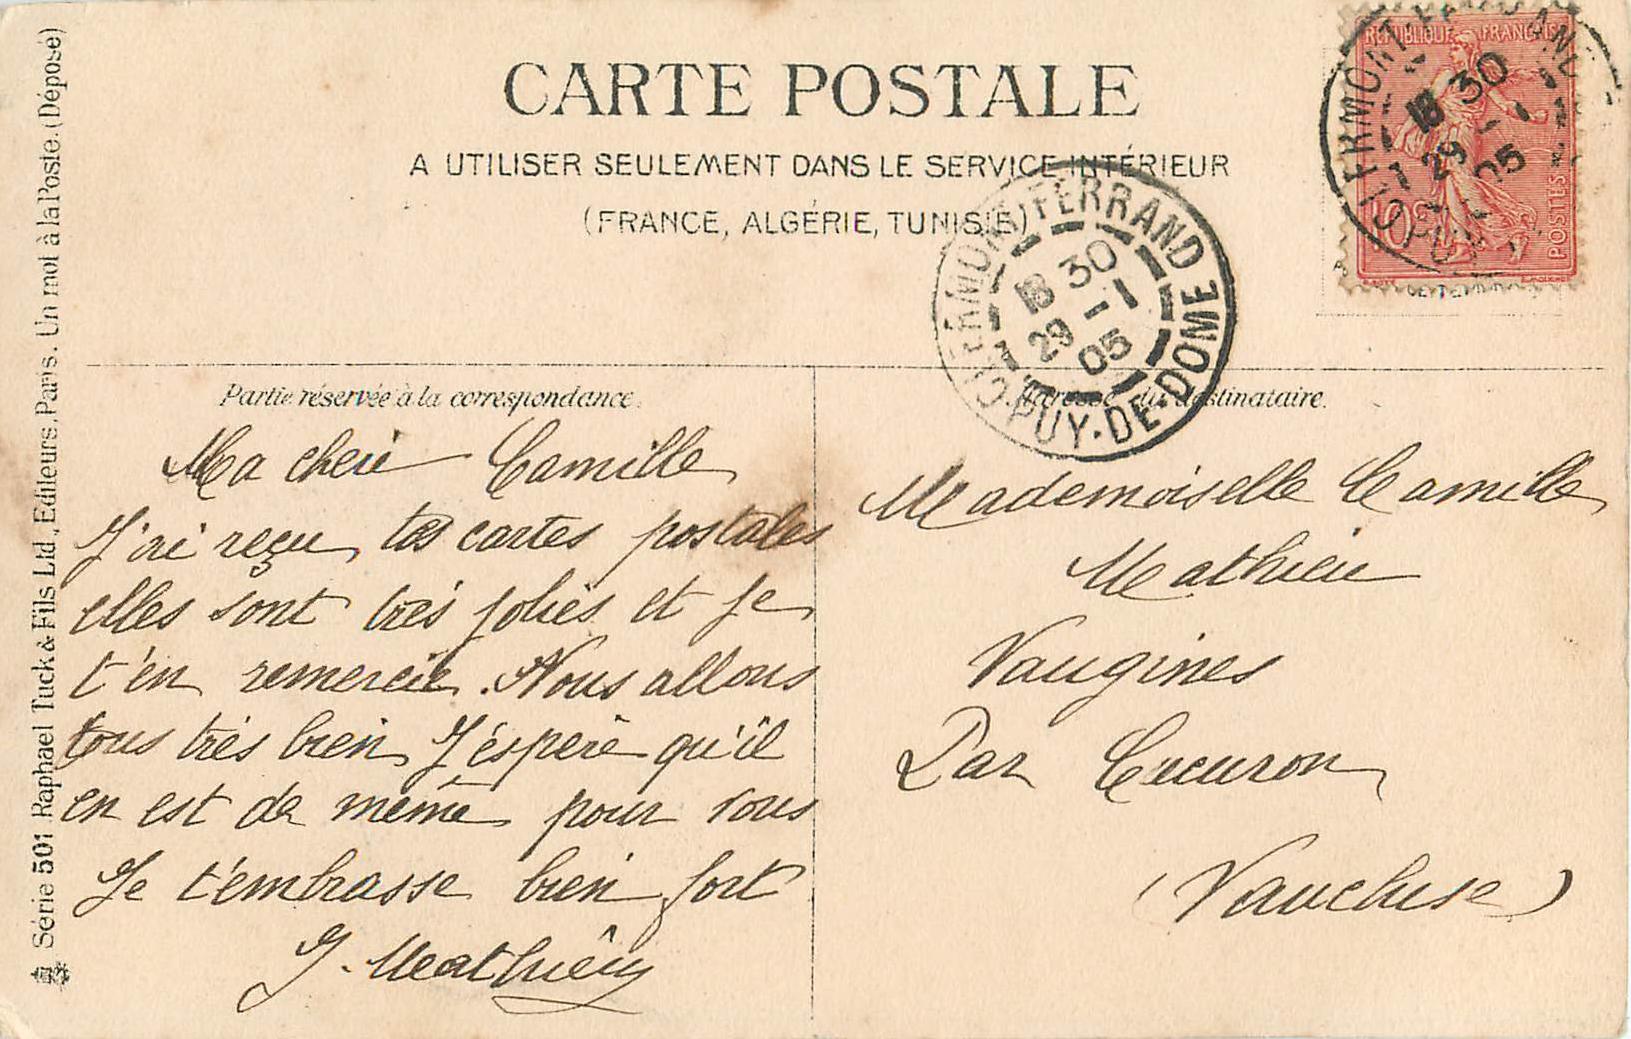 CARTE POSTALE
A UTILISER SEULEMENT DANS LE SERVICE INTÉRIEUR
(FRANCE, ALGÉRIE, TUNISIE)
RÉPUBLIQUE FRANÇAISE
10c
POSTES
CLERMONT-FERRAND
18 30
29 -1
05
PUY
CLERMONT-FERRAND
18 30
29 -1
05
PUY-DE-DOME
Partie réservée à la correspondance.
Ma cheri Camille
J'ai reçu tes cartes postales
elles sont trés jolies et je
t'en remercie. Nous allons
tous trés bien J'éspère qu'il
en est de même pour vous
Je t'embrasse bien fort
J. Mathieu
Adresse du destinataire.
Mademoiselle Camille
Mathieu
Vaugines
Par Cucuron
(Vaucluse)
Série 501 Raphael Tuck & Fils Ltd., Editeurs, Paris. Un mot à la Poste. (Déposé)